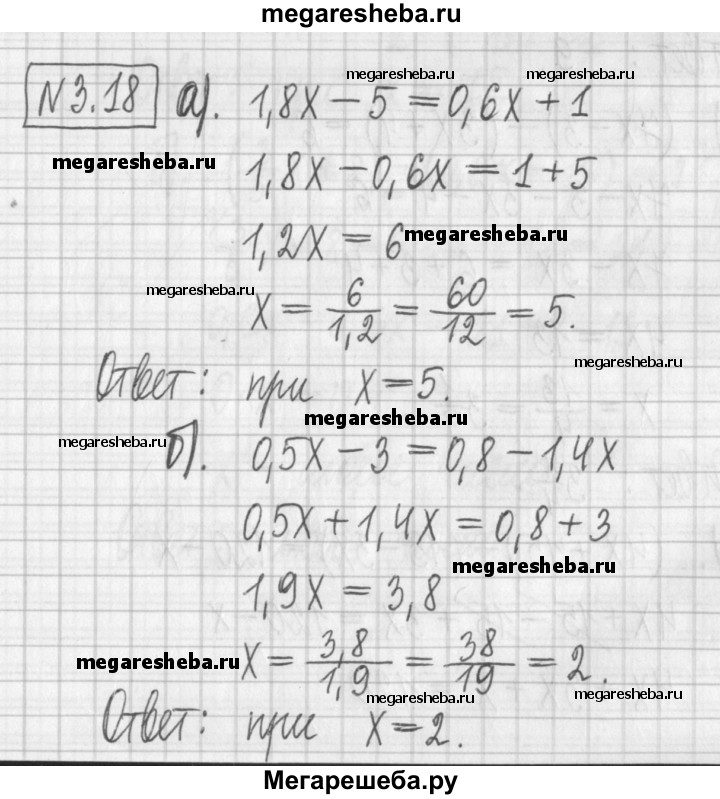 megaresheba.ru
megaresheba.ru megaresheba.ru
N 3.18 а). 1,8x − 5 = 0,6x + 1
megaresheba.ru 1,8x − 0,6x = 1 + 5
1,2x = 6 megaresheba.ru
megaresheba.ru x = 6/1,2 = 60/12 = 5.
megaresheba.ru
Ответ: при x = 5.
megaresheba.ru
megaresheba.ru б). 0,5x − 3 = 0,8 − 1,4x
0,5x + 1,4x = 0,8 + 3
megaresheba.ru
1,9x = 3,8
megaresheba.ru x = 3,8/1,9 = 38/19 = 2.
megaresheba.ru megaresheba.ru
Ответ: при x = 2.
Мегарешеба.ру